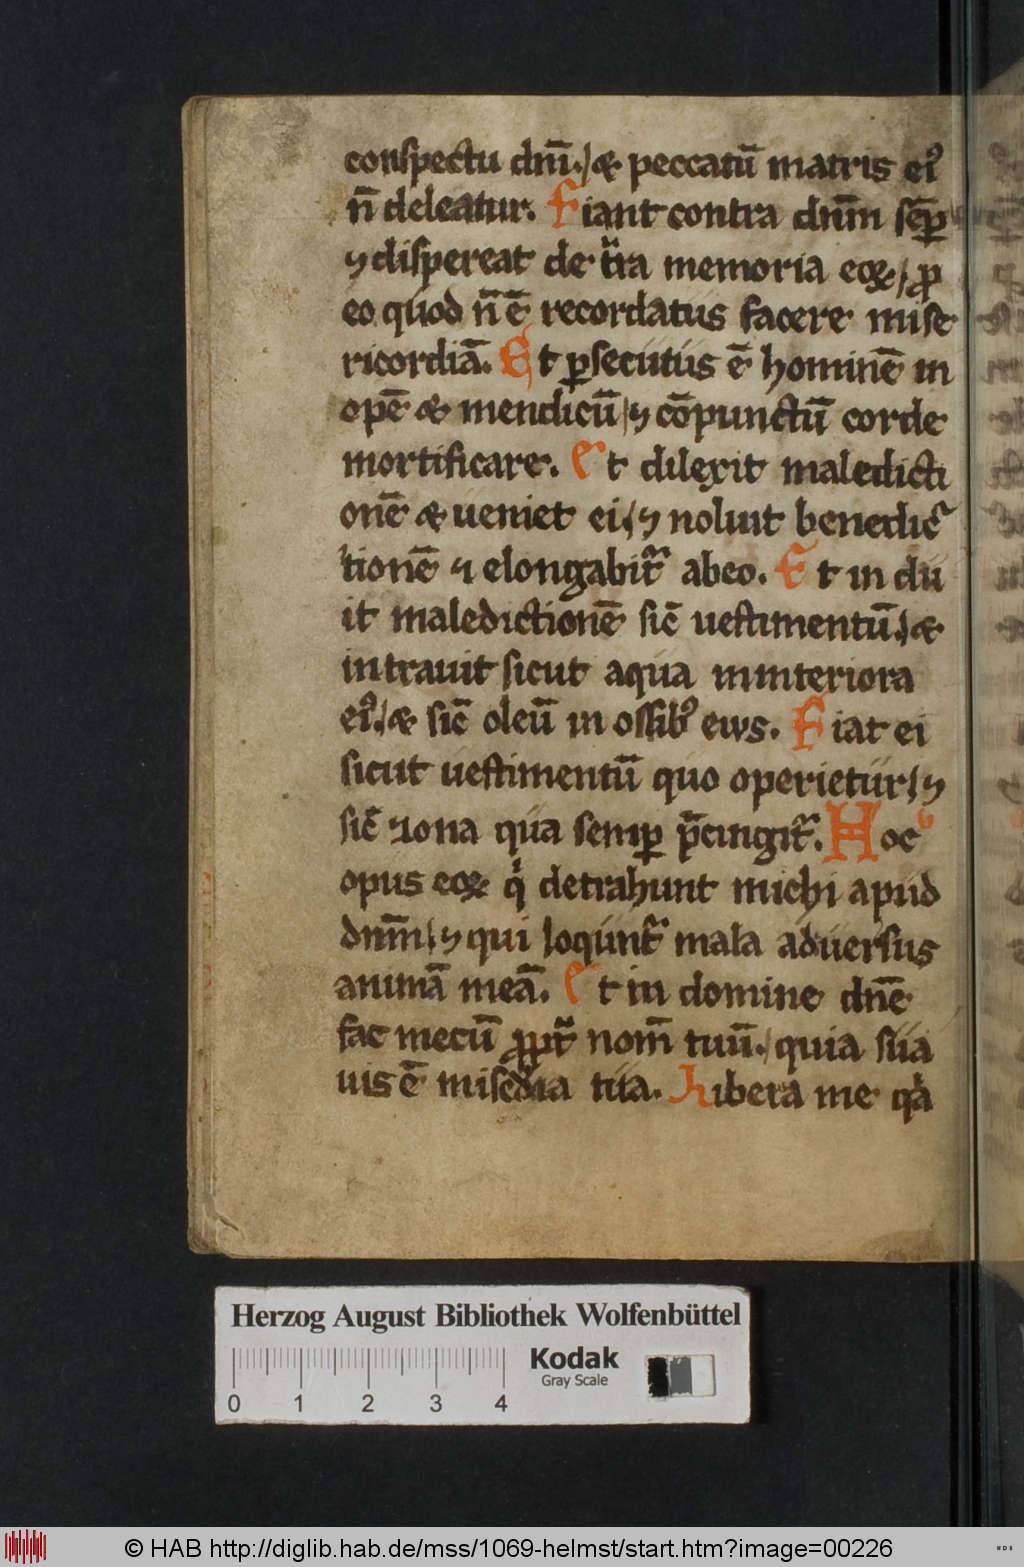 conspectu dnī. / & peccatū matris ei⁹
n̄ deleatur. Fiant contra dnm̄ semꝑ
⁊ dispereat de tͬra memoria eoꝝ / ꝓ
eo quod n̄ ē recordatus facere mise
ricordiā. Et ꝑsecutus ē hominē in
opē & mendicū / ⁊ cōpunctū corde
mortificare. Et dilexit maledicti
onē & ueniet ei / ⁊ noluit benedic
tionē ⁊ elongabitͬ abeo. Et indu
it maledictionē sic̄ uestimentū. / &
intrauit sicut aqua ininteriora
ei⁹. / & sic̄ oleū in ossib⁹ eius. Fiat ei
sicut uestimentū quo operietur / ⁊
sic̄ zona qua semꝑ p̄cingitͬ. Hoc
opus eoꝝ qͥ detrahunt michi apud
dnm̄ / ⁊ qui loquntͬ mala aduersus
animā meā. Et in domine dnē
fac mecū ꝓptͬ nom̄ tuū. / quia sua
uis ē mis̄dia tua. Libera me qͣ
Herzog August Bibliothek Wolfenbüttel
Kodak
Gray Scale
0 1 2 3 4
© HAB http://diglib.hab.de/mss/1069-helmst/start.htm?image=00226